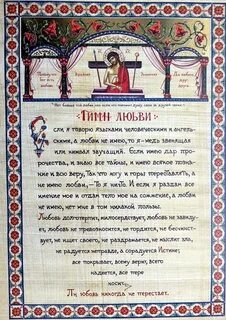 Гимн любви
Если я говорю языками человеческими и ангель-
скими, а любви не имею, то я — медь звенящая
или кимвал звучащий. Если имею дар про-
рочества, и знаю все тайны, и имею всякое позна-
ние и всю веру, так что могу и горы переставлять, а
не имею любви, — то я ничто. И если я раздам все
имение мое и отдам тело мое на сожжение, а любви
не имею, нет мне в том никакой пользы.
Любовь долготерпит, милосердствует, любовь не завиду-
ет, любовь не превозносится, не гордится, не бесчинст-
вует, не ищет своего, не раздражается, не мыслит зла,
не радуется неправде, а сорадуется Истине;
все покрывает, всему верит, всего
надеется, все пере
носит.
Любовь никогда не перестает.